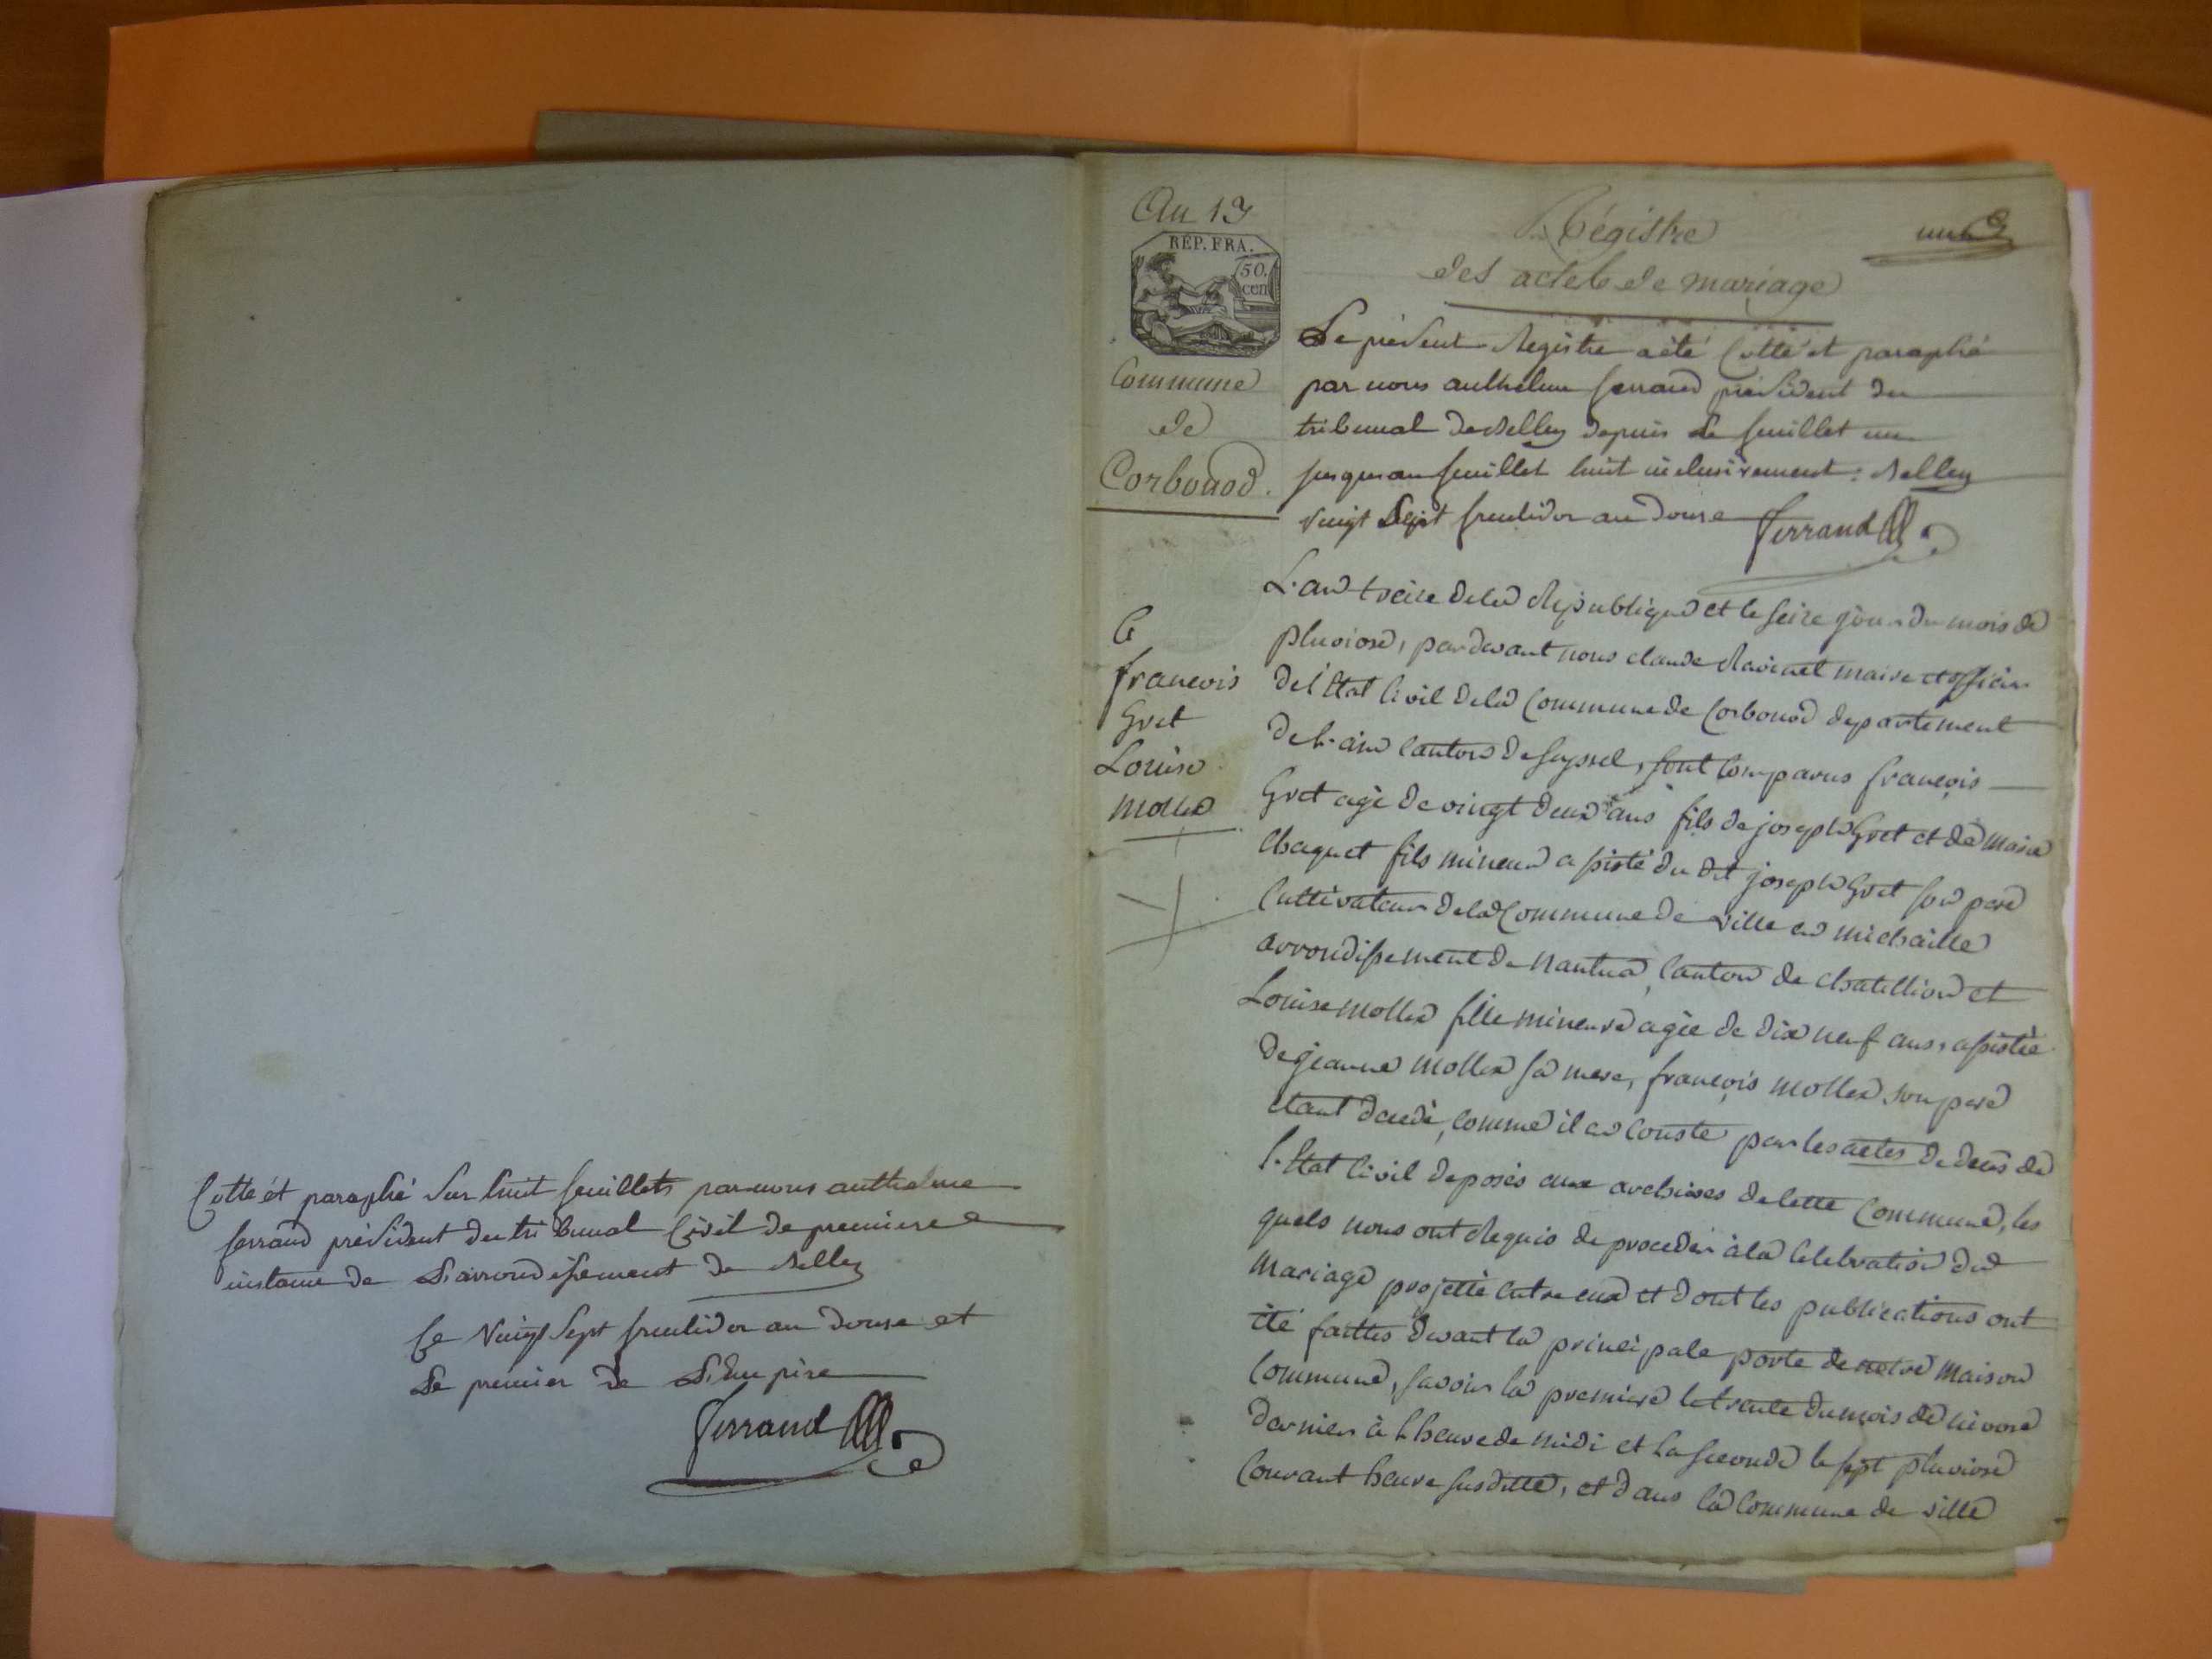 Cotté et paraphé sur huit feuillets par nous anthelme
ferrand président du tribunal Civil de premiere
instance de L'arrondissement de Belley
Ce Vingt Sept fructidor an douse et
Le premier de L'Empire
Ferrand
An 13
RÉP. FRA.
50.
cen
Commune
de
Corbonod.
Régistre
des actes de mariage
un
Le présent Registre a été Cotté et paraphé
par nous anthelme ferrand président du
tribunal de Belley depuis Le feuillet un
jusques au feuillet huit inclusivement : Belley
Vingt Sept fructidor an douse Ferrand
Ce
françois
Gret
Louise
mollex
L'an treize de la République et le seize jour du mois de
pluviose, pardevant nous claude Ravinet maire et officier
de l'Etat Civil de la Commune de Corbonod departement
de l'ain Canton de Seyssel, sont Comparus françois
Gret agé de vingt deux ans fils de joseph Gret et de marie
Chaquet fils mineur assisté du dit joseph Gret son pere
Cultivateur de la Commune de ville en michaille
arrondissement de nantua, Canton de chatillion et
Louise mollex fille mineure agée de dix neuf ans, assistée
de jeanne mollex sa mere, françois mollex son pere
étant decedé, comme il en Conste par les actes de deces de
l'Etat Civil deposés aux archives de cette Commune, les
quels nous ont Requis de proceder à la Celebration du
mariage projetté entre eux et dont les publications ont
été faittes devant la principale porte de notre maison
Commune, savoir la premiere le trente du mois de nivose
dernier à l'heure de midi et la seconde le sept pluviose
Courant heure susditte, et dans la Commune de ville